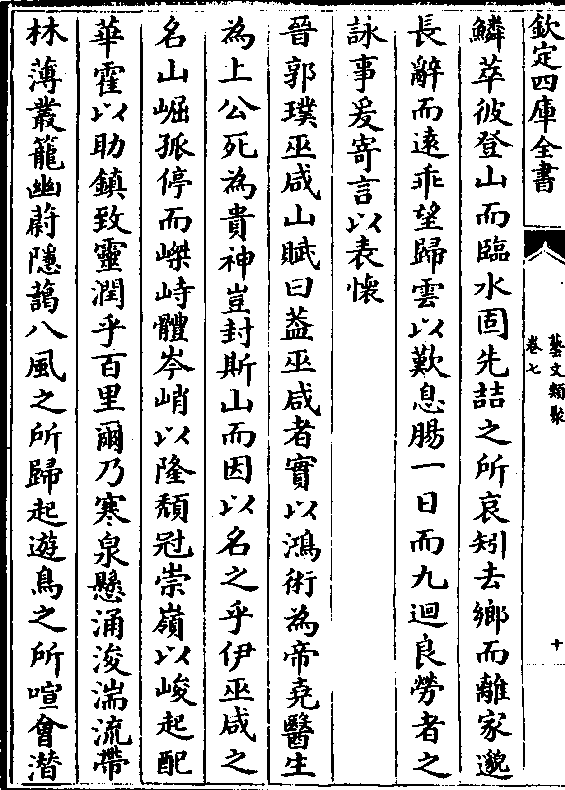 欽定四庫全書
藝文類聚
卷七
十
鱗萃彼登山而臨水固先喆之所哀矧去鄉而離家邈
長辭而遠乖望歸雲以歎息腸一日而九迴良勞者之
詠事爰寄言以表懷
晉郭璞巫咸山賦曰葢巫咸者實以鴻術為帝堯醫生
為上公死為貴神豈封斯山而因以名之乎伊巫咸之
名山崛孤停而嵥峙體岑峭以隆頹冠崇嶺以峻起配
華霍以助鎮致靈潤乎百里爾乃寒泉懸涌浚湍流帶
林薄叢籠幽蔚隱藹八風之所歸起遊鳥之所喧會潛